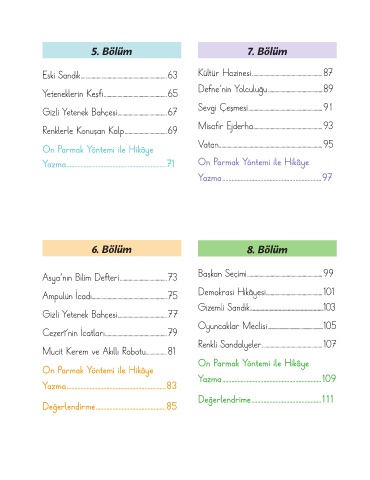 5. Bölüm
Eski Sandık.......................................63
Yeteneklerin Keşfi............................65
Gizli Yetenek Bahçesi......................67
Renklerle Konuşan Kalp...................69
On Parmak Yöntemi ile Hikâye
Yazma.............................................71
7. Bölüm
Kültür Hazinesi................................87
Defne'nin Yolculuğu.........................89
Sevgi Çeşmesi..................................91
Misafir Ejderha................................93
Vatan...............................................95
On Parmak Yöntemi ile Hikâye
Yazma.............................................97
6. Bölüm
Asya'nın Bilim Defteri.....................73
Ampulün İcadı..................................75
Gizli Yetenek Bahçesi......................77
Cezerî'nin İcatları............................79
Mucit Kerem ve Akıllı Robotu.........81
On Parmak Yöntemi ile Hikâye
Yazma.............................................83
Değerlendirme................................85
8. Bölüm
Başkan Seçimi..................................99
Demokrasi Hikâyesi.........................101
Gizemli Sandık.................................103
Oyuncaklar Meclisi.........................105
Renkli Sandalyeler...........................107
On Parmak Yöntemi ile Hikâye
Yazma.............................................109
Değerlendrime................................111